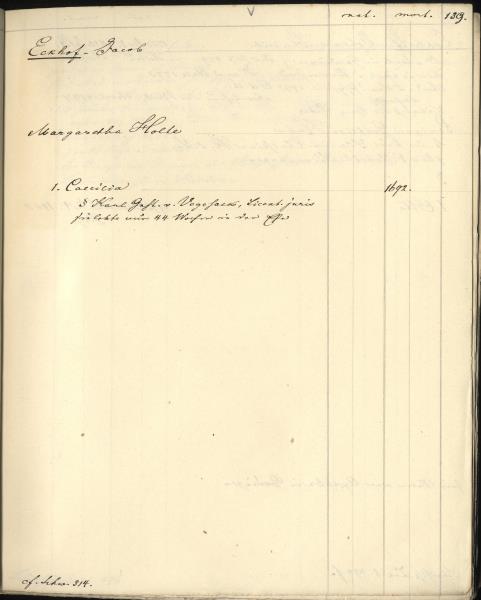 nat. mort. 139.
Eckhof - Jacob
Margaretha Holte
1. Caecilia 1692.
Karl Gust. v. Vegesack, Licent. juris
sie lebte nur 44 Wochen in der Ehe
cf. Schw. 314.